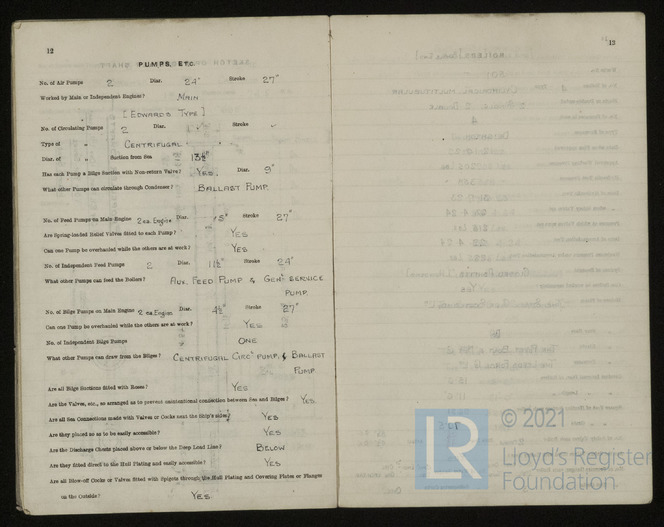 12
PUMPS, ETC.
No. of Air Pumps 2 Diar. 24" Stroke 27"
Worked by Main or Independent Engines? MAIN
[EDWARDS TYPE]
No. of Circulating Pumps 2 Diar. Stroke
Type of " CENTRIFUGAL
Diar. of " Suction from Sea 13½"
Has each Pump a Bilge Suction with Non-return Valve? YES. Diar. 9"
What other Pumps can circulate through Condenser? BALLAST PUMP.
No. of Feed Pumps on Main Engine 2 ea. Engine Diar. 5" Stroke 27"
Are Spring-loaded Relief Valves fitted to each Pump? YES
Can one Pump be overhauled while the others are at work? YES
No. of Independent Feed Pumps 2 Diar. 11½" Stroke 24"
What other Pumps can feed the Boilers? AUX. FEED PUMP & GENL SERVICE
PUMP.
No. of Bilge Pumps on Main Engine 2 ea. Engine Diar. 4½" Stroke 27"
Can one Pump be overhauled while the others are at work? YES
No. of Independent Bilge Pumps ONE
What other Pumps can draw from the Bilges? CENTRIFUGAL CIRC. PUMP. & BALLAST
PUMP
Are all Bilge Suctions fitted with Roses? YES
Are the Valves, etc., so arranged as to prevent unintentional connection between Sea and Bilges? YES
Are all Sea Connections made with Valves or Cocks next the Ship's sides? YES
Are they placed so as to be easily accessible? YES
Are the Discharge Chests placed above or below the Deep Load Line? BELOW
Are they fitted direct to the Hull Plating and easily accessible? YES
Are all Blow-off Cocks or Valves fitted with Spigots through the Hull Plating and Covering Plates or Flanges
on the Outside? YES.
13
LR
© 2021
Lloyd's Register
Foundation